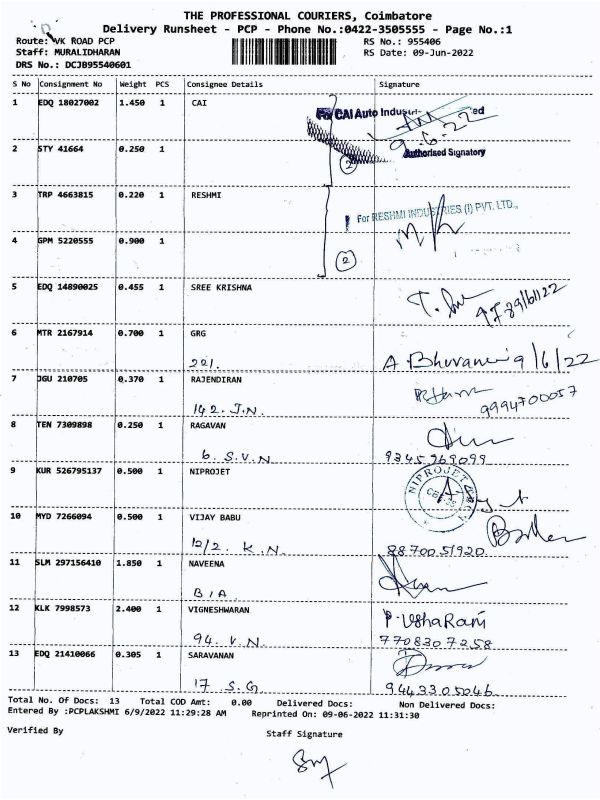 THE PROFESSIONAL COURIERS, Coimbatore
Delivery Runsheet - PCP - Phone No.:0422-3505555 - Page No.:1
Route: VK ROAD PCP RS No.: 955406
Staff: MURALIDHARAN RS Date: 09-Jun-2022
DRS No.: DCJB95540601
S No Consignment No Weight PCS Consignee Details Signature
1 EDQ 18027002 1.450 1 CAI
For CAI Auto Industr ed
9.6.22
2 STY 41664 0.250 1
2 Authorised Signatory
3 TRP 4663815 0.220 1 RESHMI
For RESHMI INDUSTRIES (I) PVT. LTD.,
4 GPM 5220555 0.900 1
2
5 EDQ 14890025 0.455 1 SREE KRISHNA
6 MTR 2167914 0.700 1 GRG
221. A Bhuvane 9/6/22
7 JGU 210705 0.370 1 RAJENDIRAN
142. J.N. 9994700057
8 TEN 7309898 0.250 1 RAGAVAN
6. S.V.N 9345969099
9 KUR 526795137 0.500 1 NIPROJET
NIPROJET
10 MYD 7266094 0.500 1 VIJAY BABU
12/2. K.N. 8870051920
11 SLM 297156410 1.850 1 NAVEENA
B.I.A
12 KLK 7998573 2.400 1 VIGNESHWARAN
P. Usha Rani
94. V.N. 7708307258
13 EDQ 21410066 0.305 1 SARAVANAN
17 S.G 9443305046
Total No. Of Docs: 13 Total COD Amt: 0.00 Delivered Docs: Non Delivered Docs:
Entered By :PCPLAKSHMI 6/9/2022 11:29:28 AM Reprinted On: 09-06-2022 11:31:30
Verified By Staff Signature